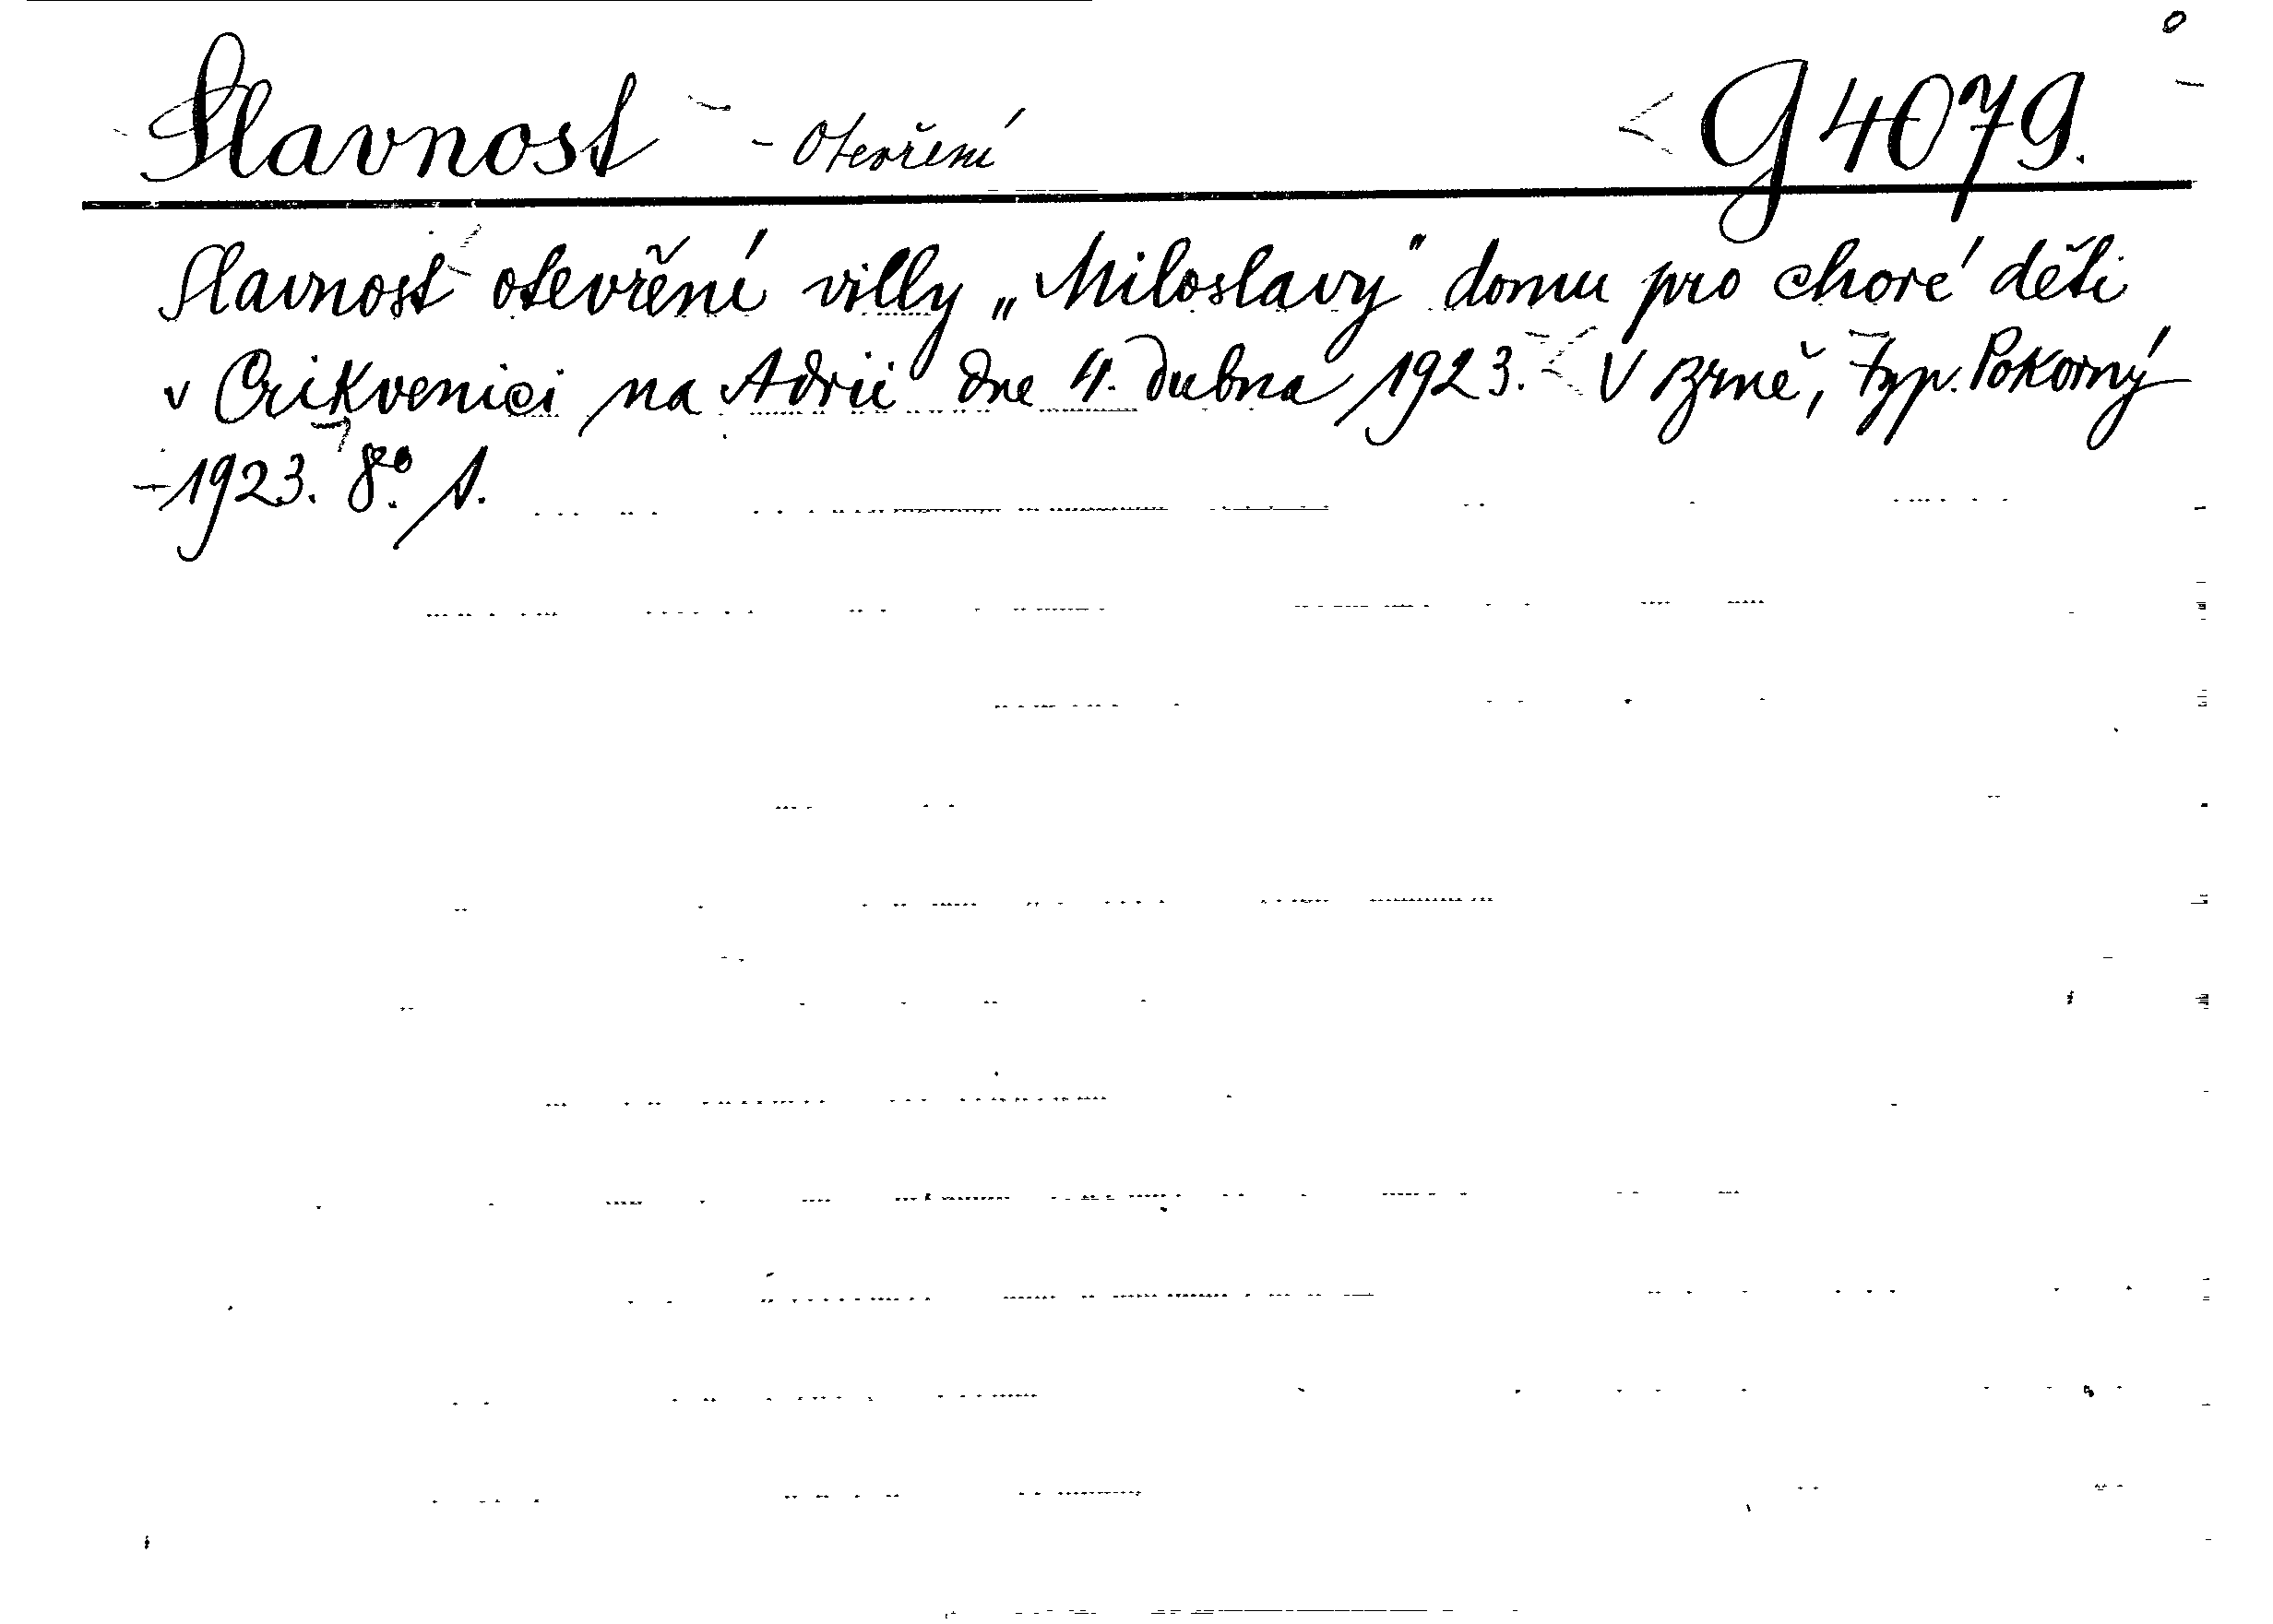 Slavnost - Otevření G 4079.
Slavnost otevření villy „Miloslavy" domu pro choré děti
v Crikvenici na Adrii dne 4. dubna 1923. V Brně, Typ. Pokorný
1923. 8° 1.